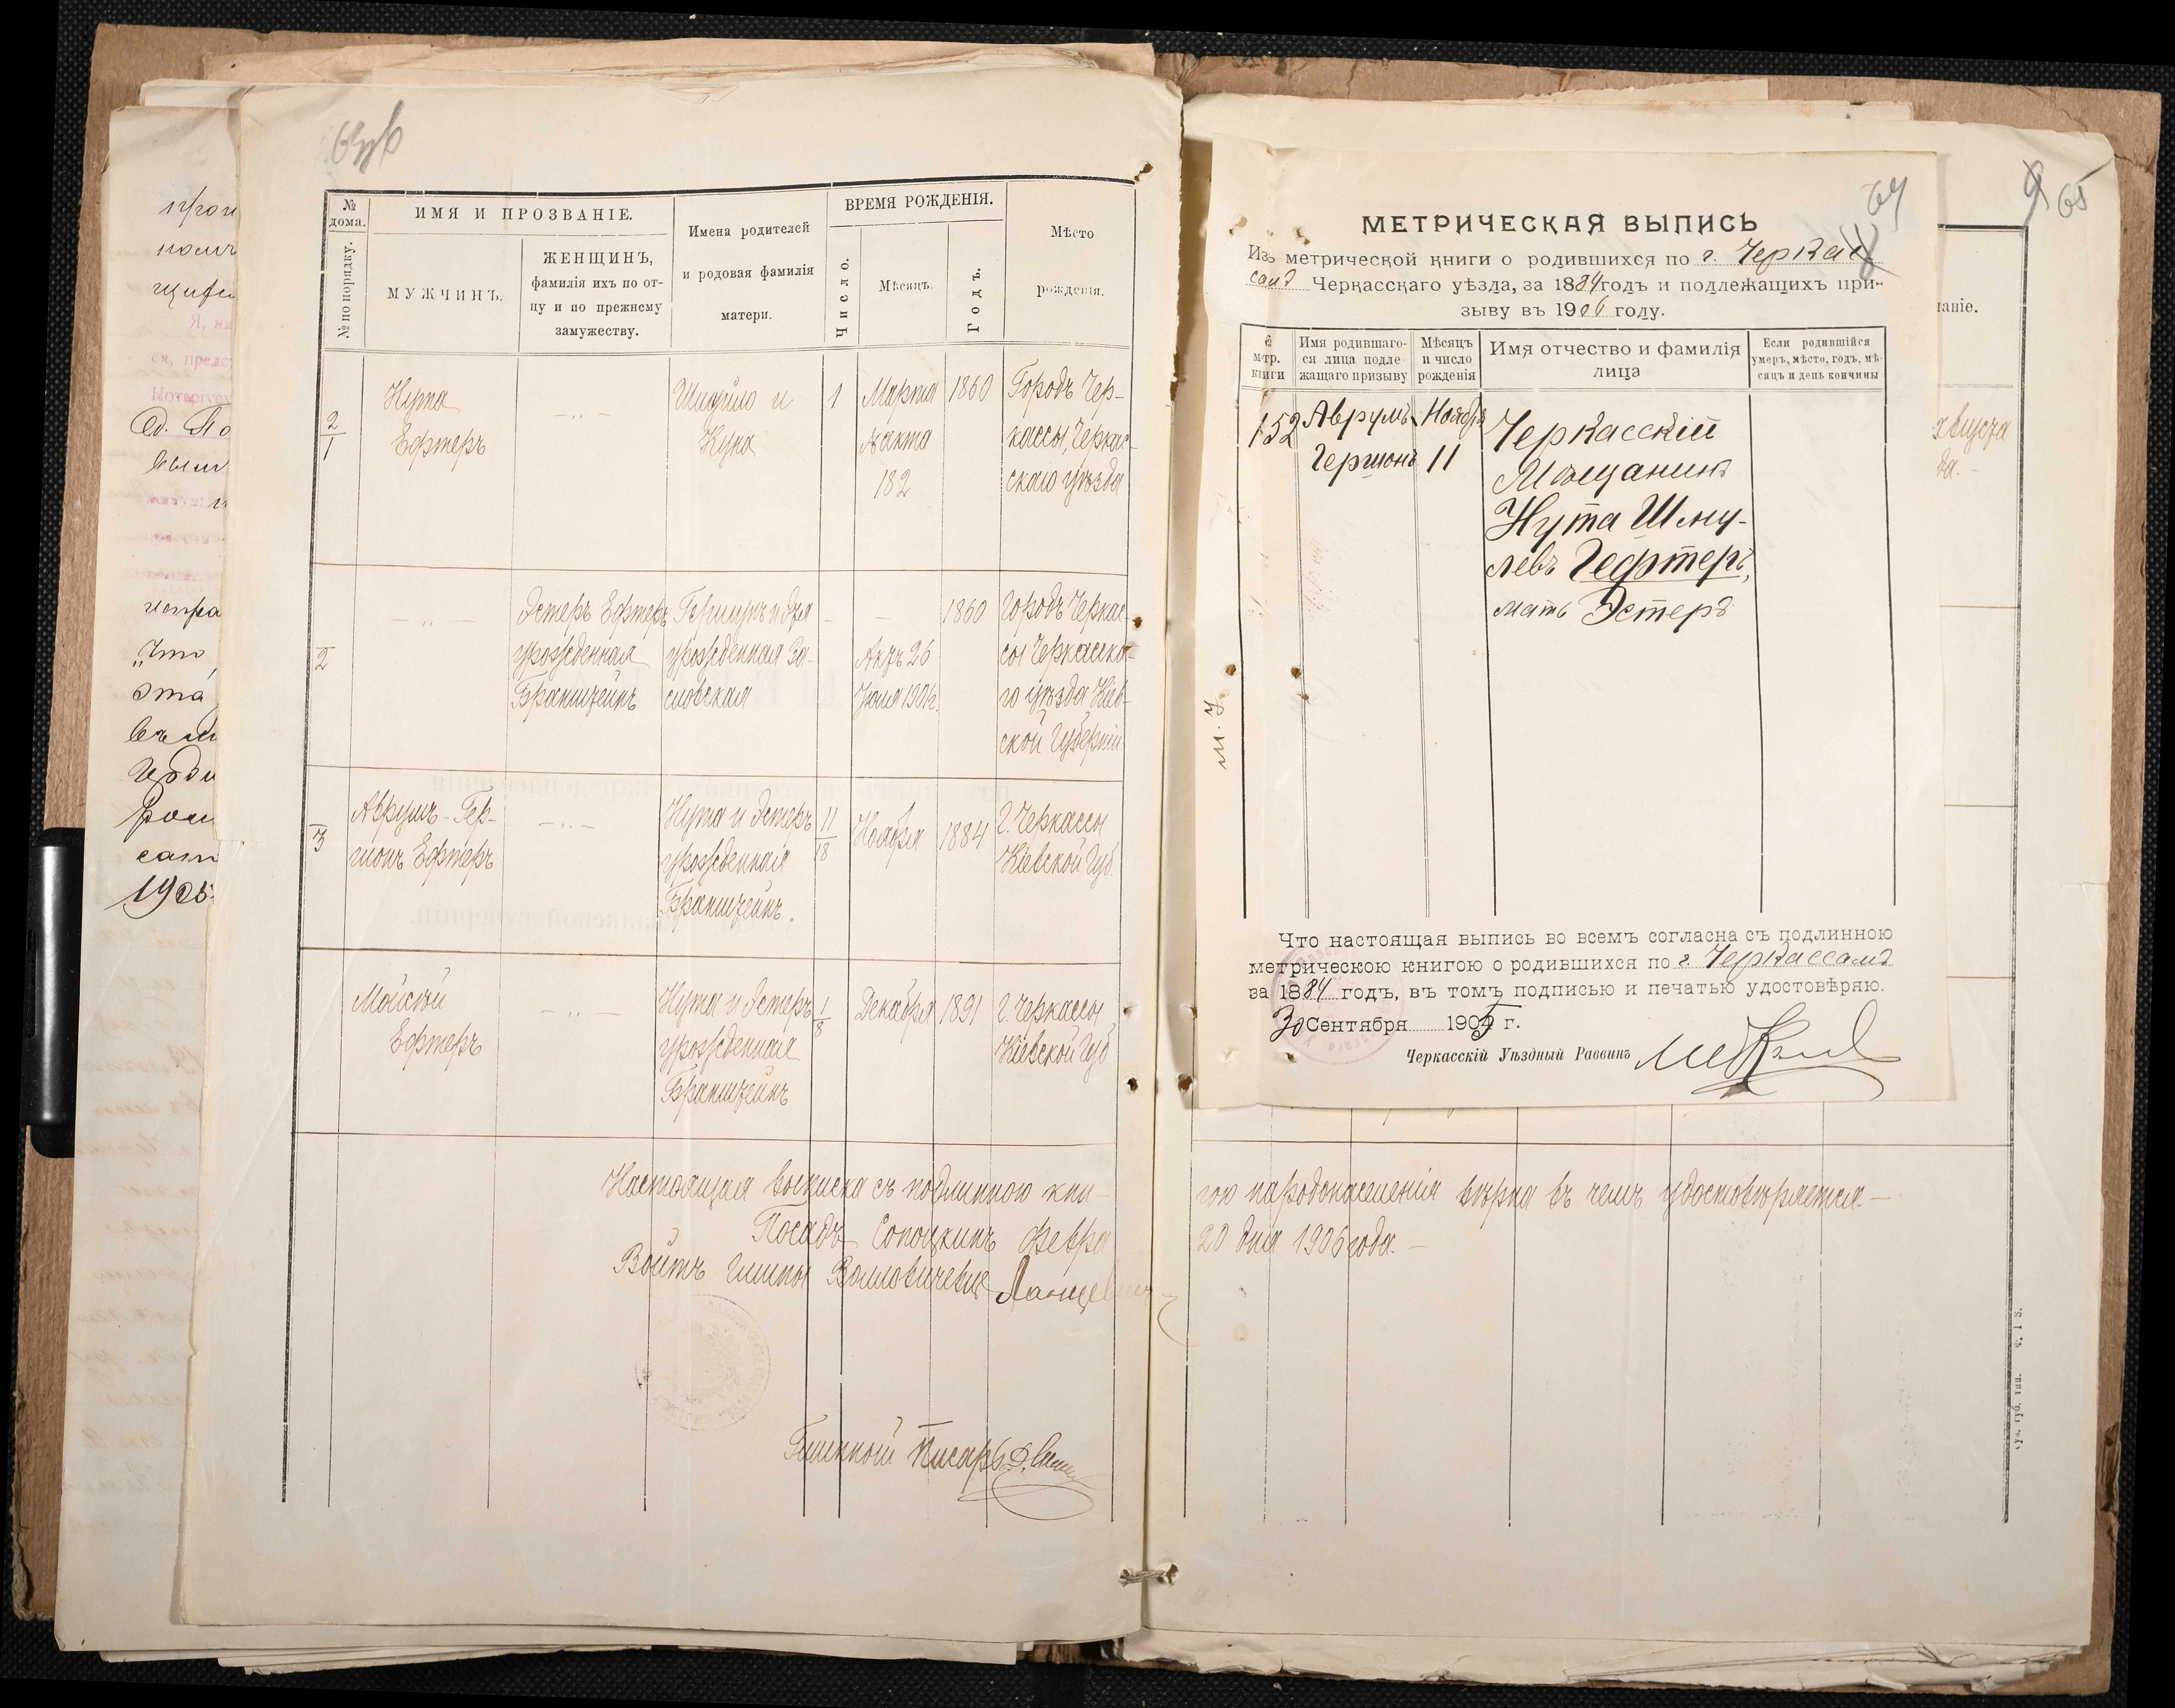 № дома.
№ по порядку.
ИМЯ И ПРОЗВАНІЕ.
МУЖЧИНЪ.
ЖЕНЩИНЪ,
фамилія ихъ по от-
цу и по прежнему
замужеству.
Имена родителей
и родовая фамилія
матери.
ВРЕМЯ РОЖДЕНІЯ.
Число.
Мѣсяцъ.
Годъ.
Мѣсто
рожденія.
2
1
Нута
Ефтеръ
Шмуйло и
Куна
1
Марта
№ акта
182
1860
Городъ Чер-
кассы, Черкас-
скаго уѣзда
2
Эстеръ Ефтеръ
урожденная
Бранштейнъ
урожденная За-
славская
Актъ 26
1860
Городъ Черкас-
сы Черкасска-
го уѣзда Кіев-
ской Губерніи
3
Аврумъ-Гер-
шонъ Ефтеръ
Нута и Эстеръ
урожденная
Бранштейнъ.
11
18
Ноября
1884
г. Черкассы
Кіевской Губ.
Мойсей
Ефтеръ
Нута и Эстеръ
урожденная
Бранштейнъ
1
8
Декабря
1891
г. Черкассы
Кіевской Губ.
Настоящая выписка съ подлинною кни-
гою народонаселенія вѣрна въ чемъ удостовѣряется.—
Посадъ Сопоцкинъ Февра
20 дня 1906 года.—
Войтъ Гмины Волловичевце
Гминный Писарь
64
МЕТРИЧЕСКАЯ ВЫПИСЬ
Изъ метрической книги о родившихся по г. Черкас
самъ Черкасскаго уѣзда, за 1884 годъ и подлежащихъ при-
зыву въ 1906 году.
№ метр. книги
Имя родившаго-
ся лица подле-
жащаго призыву
Мѣсяцъ
и число
рожденія
Имя отчество и фамилія
лица
Если родившійся
умеръ, мѣсто, годъ, мѣ-
сяцъ и день кончины
152
Аврумъ
Гершонъ
Ноября
11
Черкасскій
Мѣщанинъ
Нута Шму-
левъ Гефтеръ,
мать Эстеръ
Что настоящая выпись во всемъ согласна съ подлинною
метрическою книгою о родившихся по г. Черкассамъ
за 1884 годъ, въ томъ подписью и печатью удостовѣряю.
30 Сентября 1905 г.
Черкасскій Уѣздный Раввинъ
65